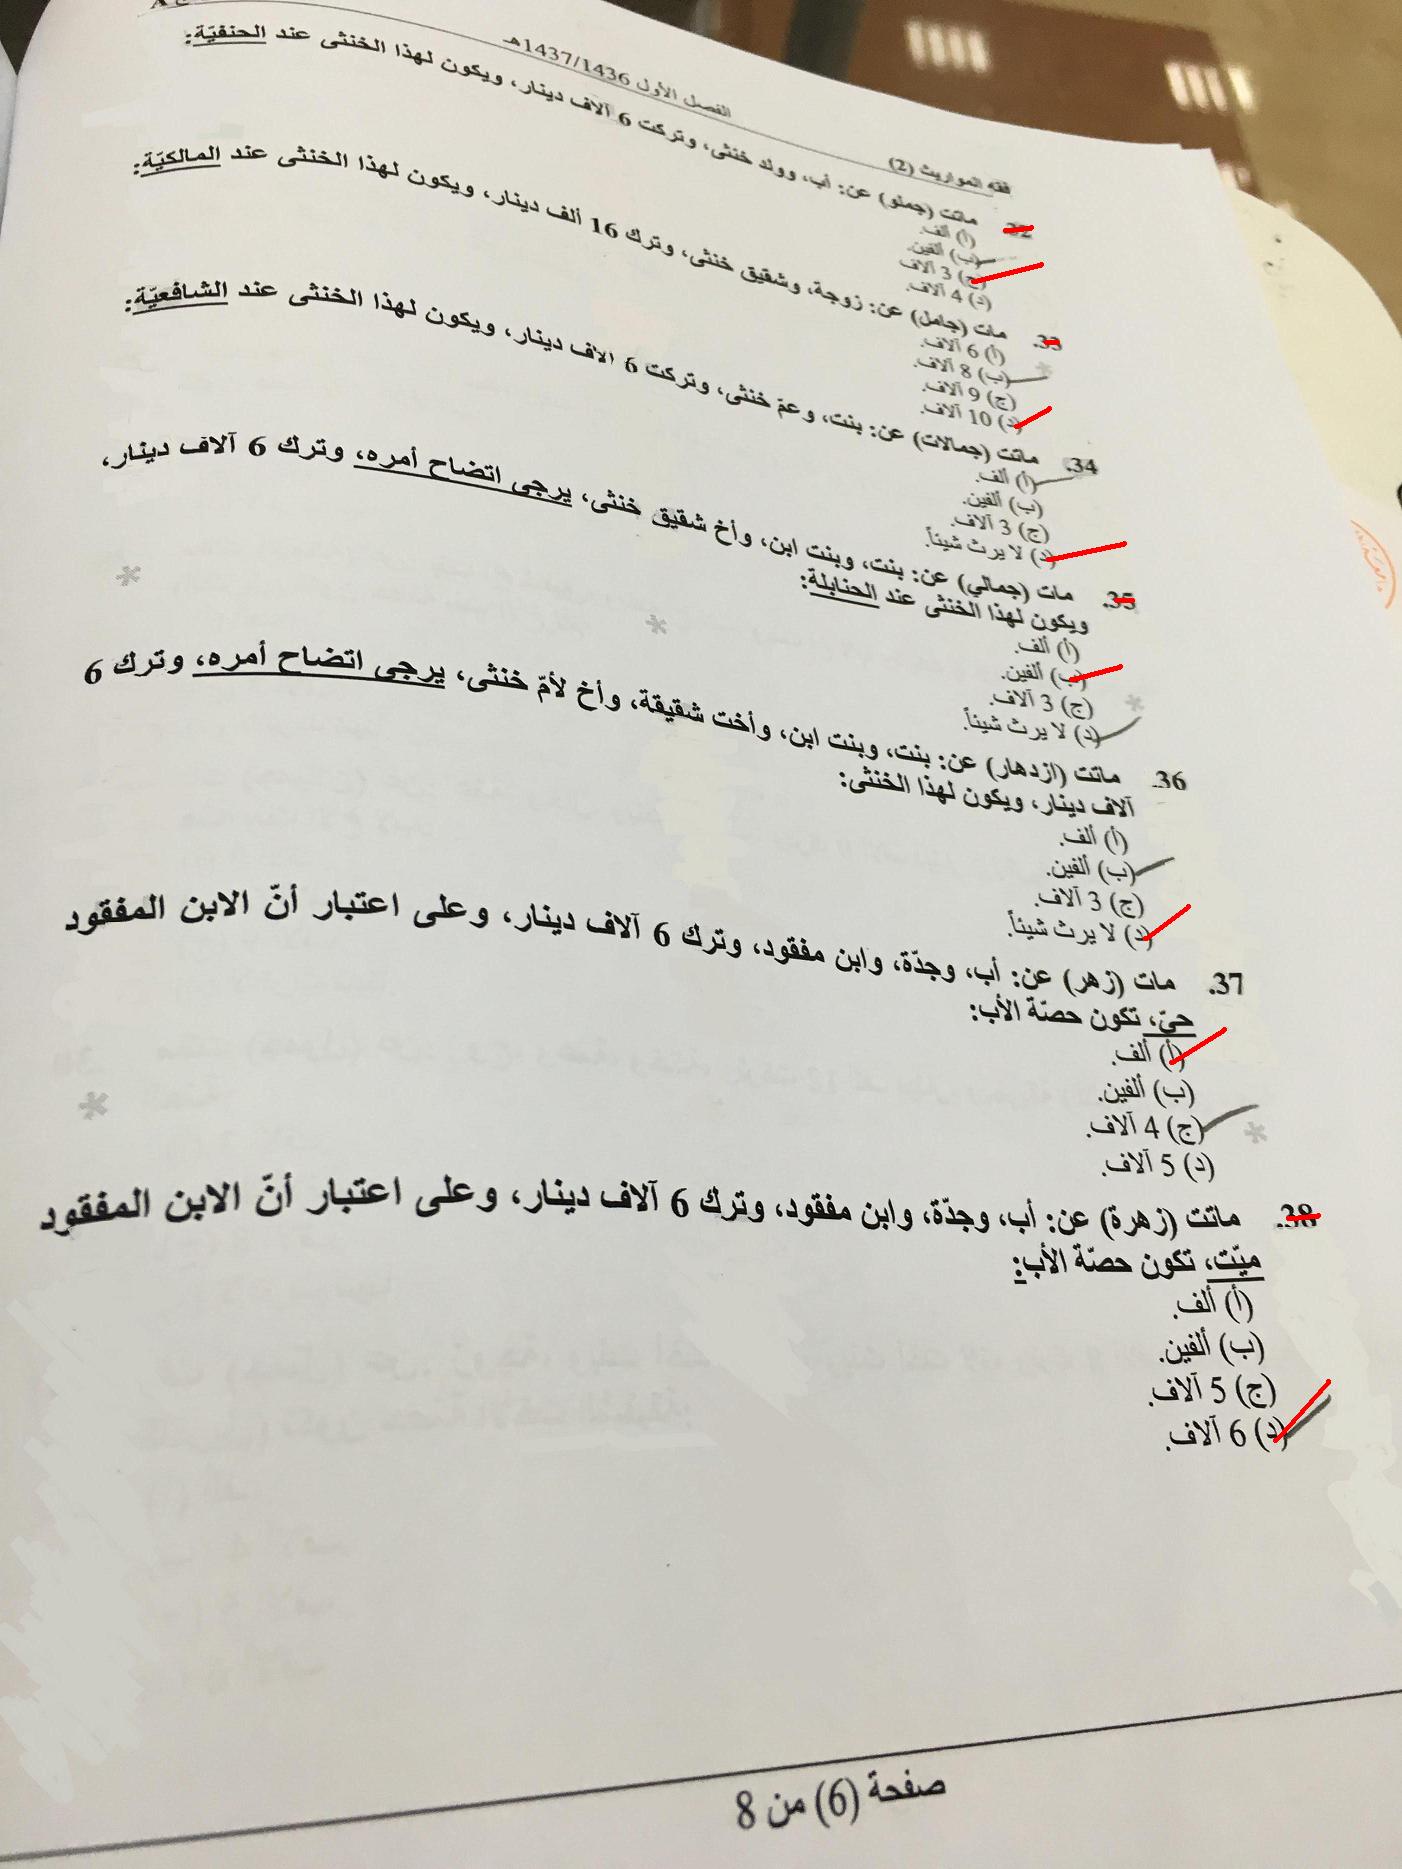 فقه المواريث (2)
الفصل الأول 1437/1436هـ
32. ماتت (جملو) عن: أب، وولد خنثى، وتركت 6 آلاف دينار، ويكون لهذا الخنثى عند الحنفيّة:
(أ) ألف.
(ب) ألفين.
(ج) 3 آلاف
(د) 4 آلاف.
33. مات (جامل) عن: زوجة، وشقيق خنثى، وترك 16 ألف دينار، ويكون لهذا الخنثى عند المالكيّة:
(أ) 6 آلاف.
(ب) 8 آلاف.
(ج) 9 آلاف.
(د) 10 آلاف.
34. ماتت (جمالات) عن: بنت، وعمّ خنثى، وتركت 6 آلاف دينار، ويكون لهذا الخنثى عند الشافعيّة:
(أ) ألف.
(ب) ألفين.
(ج) 3 آلاف.
(د) لا يرث شيئاً.
35. مات (جمالي) عن: بنت، وبنت ابن، وأخ شقيق خنثى، يرجى اتضاح أمره، وترك 6 آلاف دينار،
ويكون لهذا الخنثى عند الحنابلة:
(أ) ألف.
(ب) ألفين.
(ج) 3 آلاف.
(د) لا يرث شيئاً.
36. ماتت (ازدهار) عن: بنت، وبنت ابن، وأخت شقيقة، وأخ لأمّ خنثى، يرجى اتضاح أمره، وترك 6
آلاف دينار، ويكون لهذا الخنثى:
(أ) ألف.
(ب) ألفين.
(ج) 3 آلاف.
(د) لا يرث شيئاً.
37. مات (زهر) عن: أب، وجدّة، وابن مفقود، وترك 6 آلاف دينار، وعلى اعتبار أنّ الابن المفقود
حيّ، تكون حصّة الأب:
(أ) ألف.
(ب) ألفين.
(ج) 4 آلاف.
(د) 5 آلاف.
38. ماتت (زهرة) عن: أب، وجدّة، وابن مفقود، وترك 6 آلاف دينار، وعلى اعتبار أنّ الابن المفقود
ميّت، تكون حصّة الأب:
(أ) ألف.
(ب) ألفين.
(ج) 5 آلاف.
(د) 6 آلاف.
صفحة (6) من 8